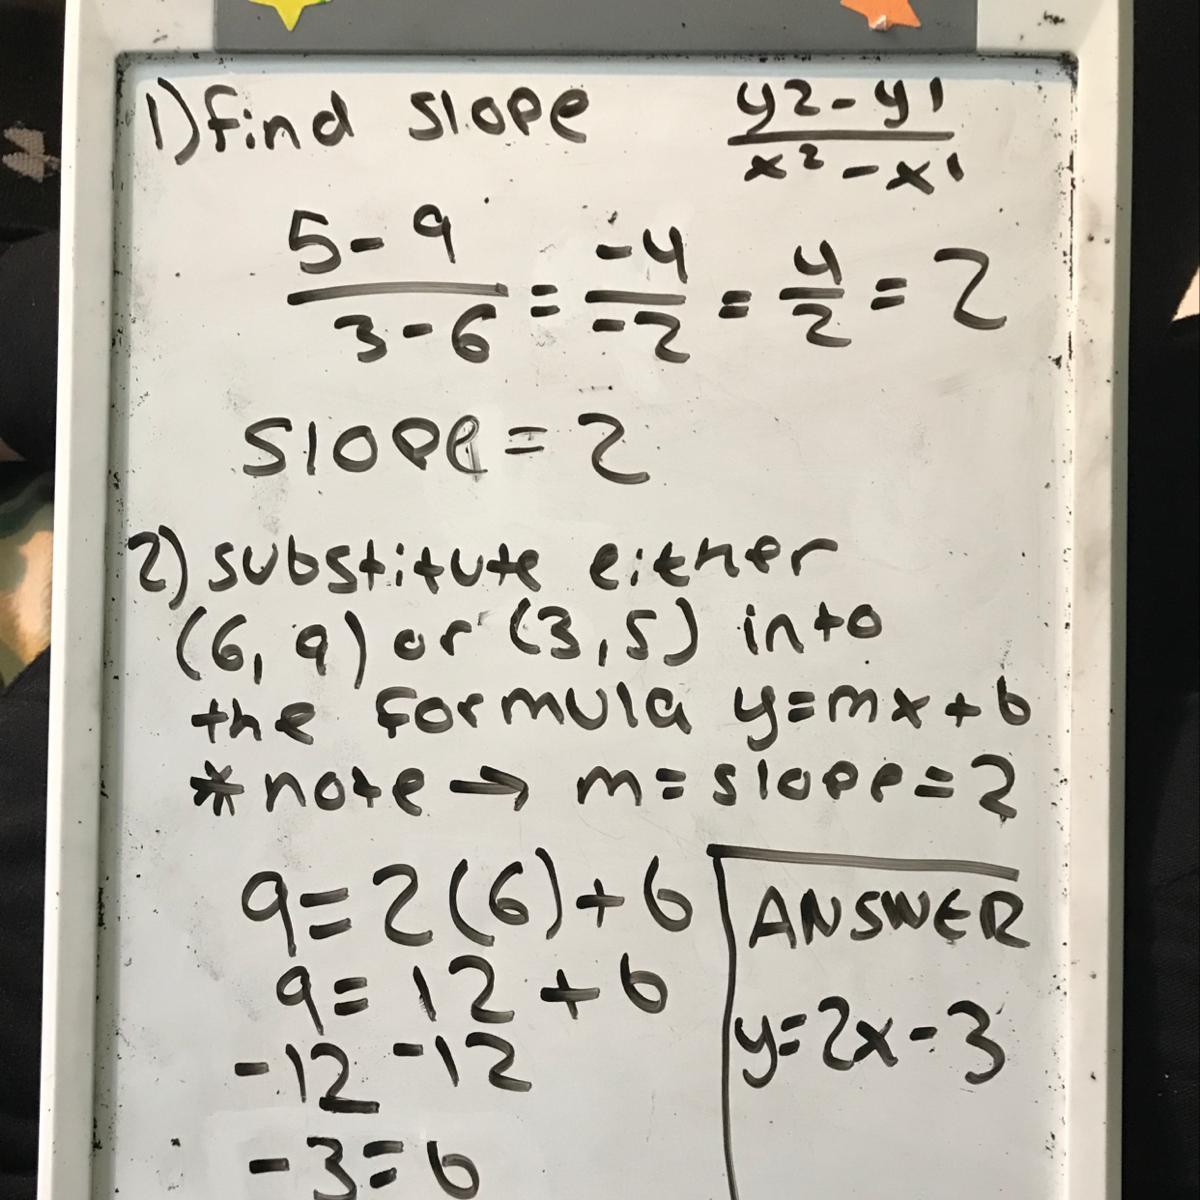 1) Find slope y2-y1/x2-x1
5-9/3-6 = -4/-2 = 4/2 = 2
slope = 2
2) substitute either
(6,9) or (3,5) into
the formula y=mx+b
*note → m=slope=2
9=2(6)+b
9=12+b
-12 -12
-3=b
ANSWER
y=2x-3